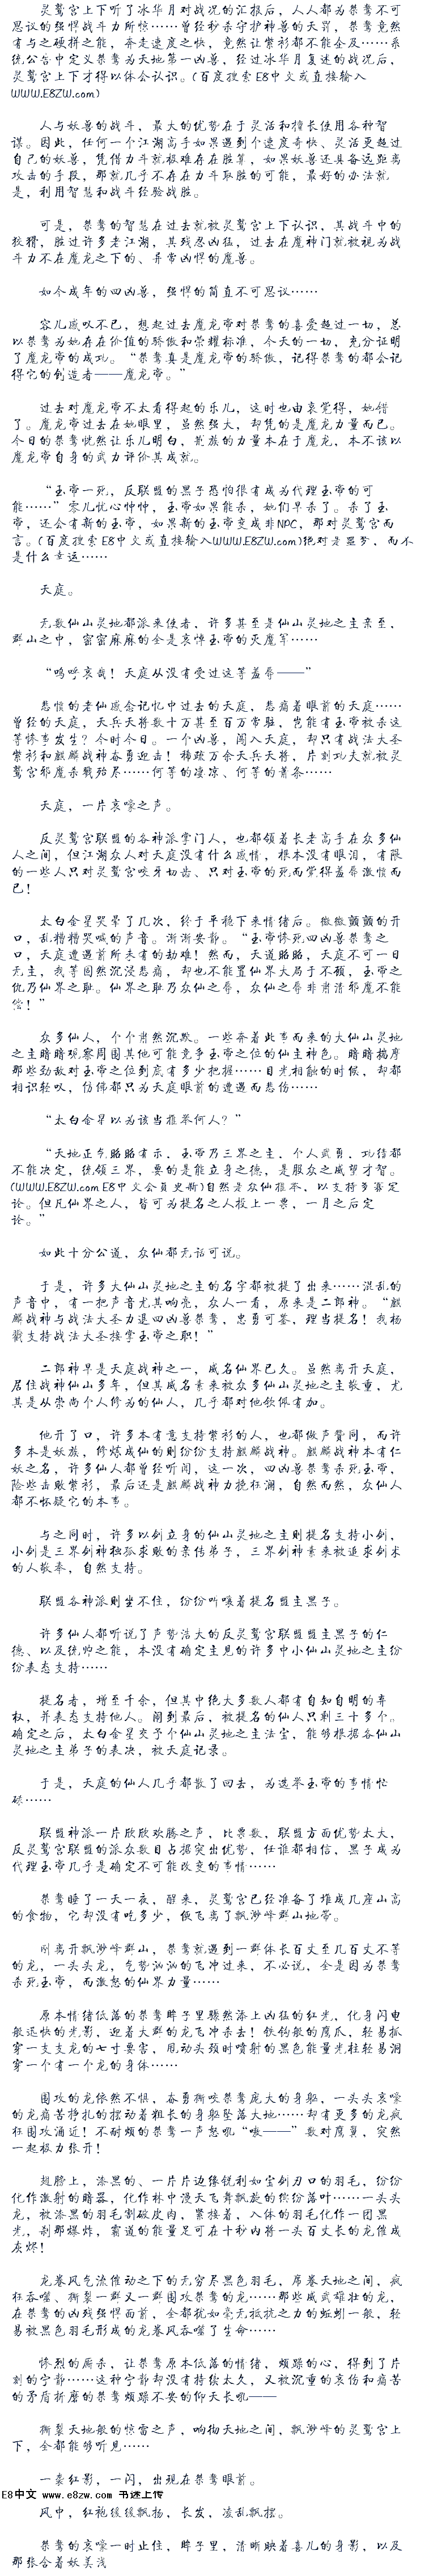 灵鹫宫上下听了冰华月对战况的汇报后，人人都为桀鹜不可
思议的强悍战斗力所惊……曾经秒杀守护神兽的天罚，桀鹜竟然
有与之硬拼之能，奔走速度之快，竟然让紫衫都不能企及……系
统公告中定义桀鹜为天地第一凶兽，经过冰华月复述的战况后，
灵鹫宫上下才得以体会认识。(百度搜索E8中文或直接输入
WWW.E8ZW.com)
人与妖兽的战斗，最大的优势在于灵活和擅长使用各种智
谋。因此，任何一个江湖高手如果遇到个速度奇快、灵活更超过
自己的妖兽，凭借力斗就极难存在胜算，如果妖兽还具备远距离
攻击的手段，那就几乎不存在力斗取胜的可能，最好的办法就
是，利用智慧和战斗经验战胜。
可是，桀鹜的智慧在过去就被灵鹫宫上下认识，其战斗中的
狡猾，胜过许多老江湖，其残忍凶猛，过去在魔神门就被视为战
斗力不在魔龙之下的、异常凶悍的魔兽。
如今成年的四凶兽，强悍的简直不可思议……
容儿感叹不已，想起过去魔龙帝对桀鹜的喜爱超过一切，总
以桀鹜为她存在价值的骄傲和荣耀标准，今天的一切，充分证明
了魔龙帝的成功。“桀鹜真是魔龙帝的骄傲，记得桀鹜的都会记
得它的创造者——魔龙帝。”
过去对魔龙帝不太看得起的乐儿，这时也由衷觉得，她错
了。魔龙帝过去在她眼里，虽然强大，却凭的是魔龙力量而已。
今日的桀鹜恍然让乐儿明白，贰族的力量本在于魔龙，本不该以
魔龙帝自身的武力评价其成就。
“玉帝一死，反联盟的黑子恐怕很有成为代理玉帝的可
能……”零儿忧心忡忡，玉帝如果能杀，她们早杀了。杀了玉
帝，还会有新的玉帝，如果新的玉帝变成非NPC，那对灵鹫宫而
言。(百度搜索E8中文或直接输入WWW.E8ZW.com)绝对是噩梦，而不
是什么幸运……
天庭。
无数仙山灵地都派来使者，许多甚至是仙山灵地之主亲至，
群山之中，密密麻麻的全是哀悼玉帝的灭魔军……
“呜呼哀哉！天庭从没有受过这等羞辱——”
悲愤的老仙感念记忆中过去的天庭，悲痛着眼前的天庭……
曾经的天庭，天兵天将数十万甚至百万常驻，岂能有玉帝被杀这
等惨事发生？今时今日。一个凶兽，闯入天庭，却只有战法大圣
紫衫和麒麟战神奋勇迎击！稀疏万余天兵天将，片刻功夫就被灵
鹫宫邪魔杀戮殆尽……何等的凄凉、何等的萧条……
天庭，一片哀嚎之声。
反灵鹫宫联盟的各神派掌门人，也都领着长老高手在众多仙
人之间，但江湖众人对天庭没有什么感情，根本没有眼泪，有限
的一些人只对灵鹫宫咬牙切齿、只对玉帝的死而觉得羞辱激愤而
已！
太白金星哭晕了几次，终于平稳下来情绪后。微微颤颤的开
口，乱糟糟哭喊的声音。渐渐安静。“玉帝惨死四凶兽桀鹜之
口，天庭遭遇前所未有的劫难！然而，天道昭昭，天庭不可一日
无主，我等固然沉浸悲痛，却也不能置仙界大局于不顾，玉帝之
仇乃仙界之耻。仙界之耻乃众仙之辱，众仙之辱非肃清邪魔不能
偿！”
众多仙人，个个肃然沉默。一些奔着此事而来的大仙山灵地
之主暗暗观察周围其他可能竞争玉帝之位的仙主神色。暗暗揣摩
那些劲敌对玉帝之位到底有多少把握……目光相触的时候，却都
相识轻叹，仿佛都只为天庭眼前的遭遇而悲伤……
“太白金星以为该当推举何人？”
“天地正气昭昭有示、玉帝乃三界之主，个人武勇、功绩都
不能决定，统领三界，要的是能立身之德，是服众之威望才智。
(WWW.E8ZW.com E8中文会员更新)自然是众仙推举、以支持多寡定
论。但凡仙界之人，皆可为提名之人投上一票，一月之后定
论。”
如此十分公道，众仙都无话可说。
于是，许多大仙山灵地之主的名字都被提了出来……混乱的
声音中，有一把声音尤其响亮，众人一看，原来是二郎神。“麒
麟战神与战法大圣力退四凶兽桀鹜，忠勇可鉴，理当提名！我杨
戬支持战法大圣接掌玉帝之职！”
二郎神早是天庭战神之一，威名仙界已久。虽然离开天庭，
居住战神仙山多年，但其威名素来被众多仙山灵地之主敬重，尤
其是从崇尚个人修为的仙人，几乎都对他钦佩有加。
他开了口，许多本有意支持紫衫的人，也都做声赞同，而许
多本是妖族，修炼成仙的则纷纷支持麒麟战神。麒麟战神本有仁
妖之名，许多仙人都曾经听闻，这一次，四凶兽桀鹜杀死玉帝，
险些击败紫衫，最后还是麒麟战神力挽狂澜，自然而然，众仙人
都不怀疑它的本事。
与之同时，许多以剑立身的仙山灵地之主则提名支持小剑，
小剑是三界剑神独孤求败的亲传弟子，三界剑神素来被追求剑术
的人敬奉，自然支持。
联盟各神派则坐不住，纷纷叫嚷着提名盟主黑子。
许多仙人都听说了声势浩大的反灵鹫宫联盟盟主黑子的仁
德、以及统帅之能，本没有确定主见的许多中小仙山灵地之主纷
纷表态支持……
提名者，增至千余，但其中绝大多数人都有自知自明的弃
权，并表态支持他人。闹到最后，被提名的仙人只剩三十多个。
确定之后，太白金星交予个仙山灵地之主法宝，能够根据各仙山
灵地之主弟子的表决，被天庭记录。
于是，天庭的仙人几乎都散了回去，为选举玉帝的事情忙
碌……
联盟神派一片欣欣欢腾之声，比票数，联盟方面优势太大，
反灵鹫宫联盟的派众数目占据突出优势，任谁都相信，黑子成为
代理玉帝几乎是确定不可能改变的事情……
桀鹜睡了一天一夜，醒来，灵鹫宫已经准备了堆成几座山高
的食物，它却没有吃多少，便飞离了飘渺峰群山地带。
刚离开飘渺峰群山，桀鹜就遇到一群体长百丈至几百丈不等
的龙，一头头龙，气势汹汹的飞冲过来，不必说，全是因为桀鹜
杀死玉帝，而激怒的仙界力量……
原本情绪低落的桀鹜眸子里骤然添上凶猛的红光，化身闪电
般迅快的光影，迎着大群的龙飞冲杀去！铁钩般的鹰爪，轻易抓
穿一支支龙的七寸要害，甩动头颈时喷射的黑色能量光柱轻易洞
穿一个有一个龙的身体……
围攻的龙依然不惧，奋勇撕咬桀鹜庞大的身躯，一头头哀嚎
的龙痛苦挣扎的摆动着粗长的身躯坠落大地……却有更多的龙疯
狂围攻涌近！不耐烦的桀鹜一声怒吼“嗷——”数对鹰翼，突然
一起极力张开！
翅膀上，漆黑的、一片片边缘锐利如宝剑刃口的羽毛，纷纷
化作激射的暗器，化作林中漫天飞舞飘旋的缤纷落叶……一头头
龙，被漆黑的羽毛割破皮肉，紧接着，入体的羽毛化作一团黑
光，刹那爆炸，霸道的能量足可在十秒内将一头百丈长的龙催成
灰烬！
龙卷风气流催动之下的无穷尽黑色羽毛，席卷天地之间，疯
狂吞噬、撕裂一群又一群围攻桀鹜的龙……那些威武雄壮的龙，
在桀鹜的凶残强悍面前，全都犹如毫无抵抗之力的蚯蚓一般，轻
易被黑色羽毛形成的龙卷风吞噬了生命……
惨烈的厮杀，让桀鹜原本低落的情绪，烦躁的心，得到了片
刻的宁静……这种宁静却没有持续太久，又被沉重的哀伤和痛苦
的矛盾折磨的桀鹜烦躁不安的仰天长吼——
撕裂天地般的惊雷之声，响彻天地之间，飘渺峰的灵鹫宫上
下，全都能够听见……
一袭红影，一闪，出现在桀鹜眼前。
E8中文 www.e8zw.com 书迷上传
风中，红袍缓缓飘扬，长发，凌乱飘摆。
桀鹜的哀嚎一时止住，眸子里，清晰映着喜儿的身影，以及
那张含着妖美浅